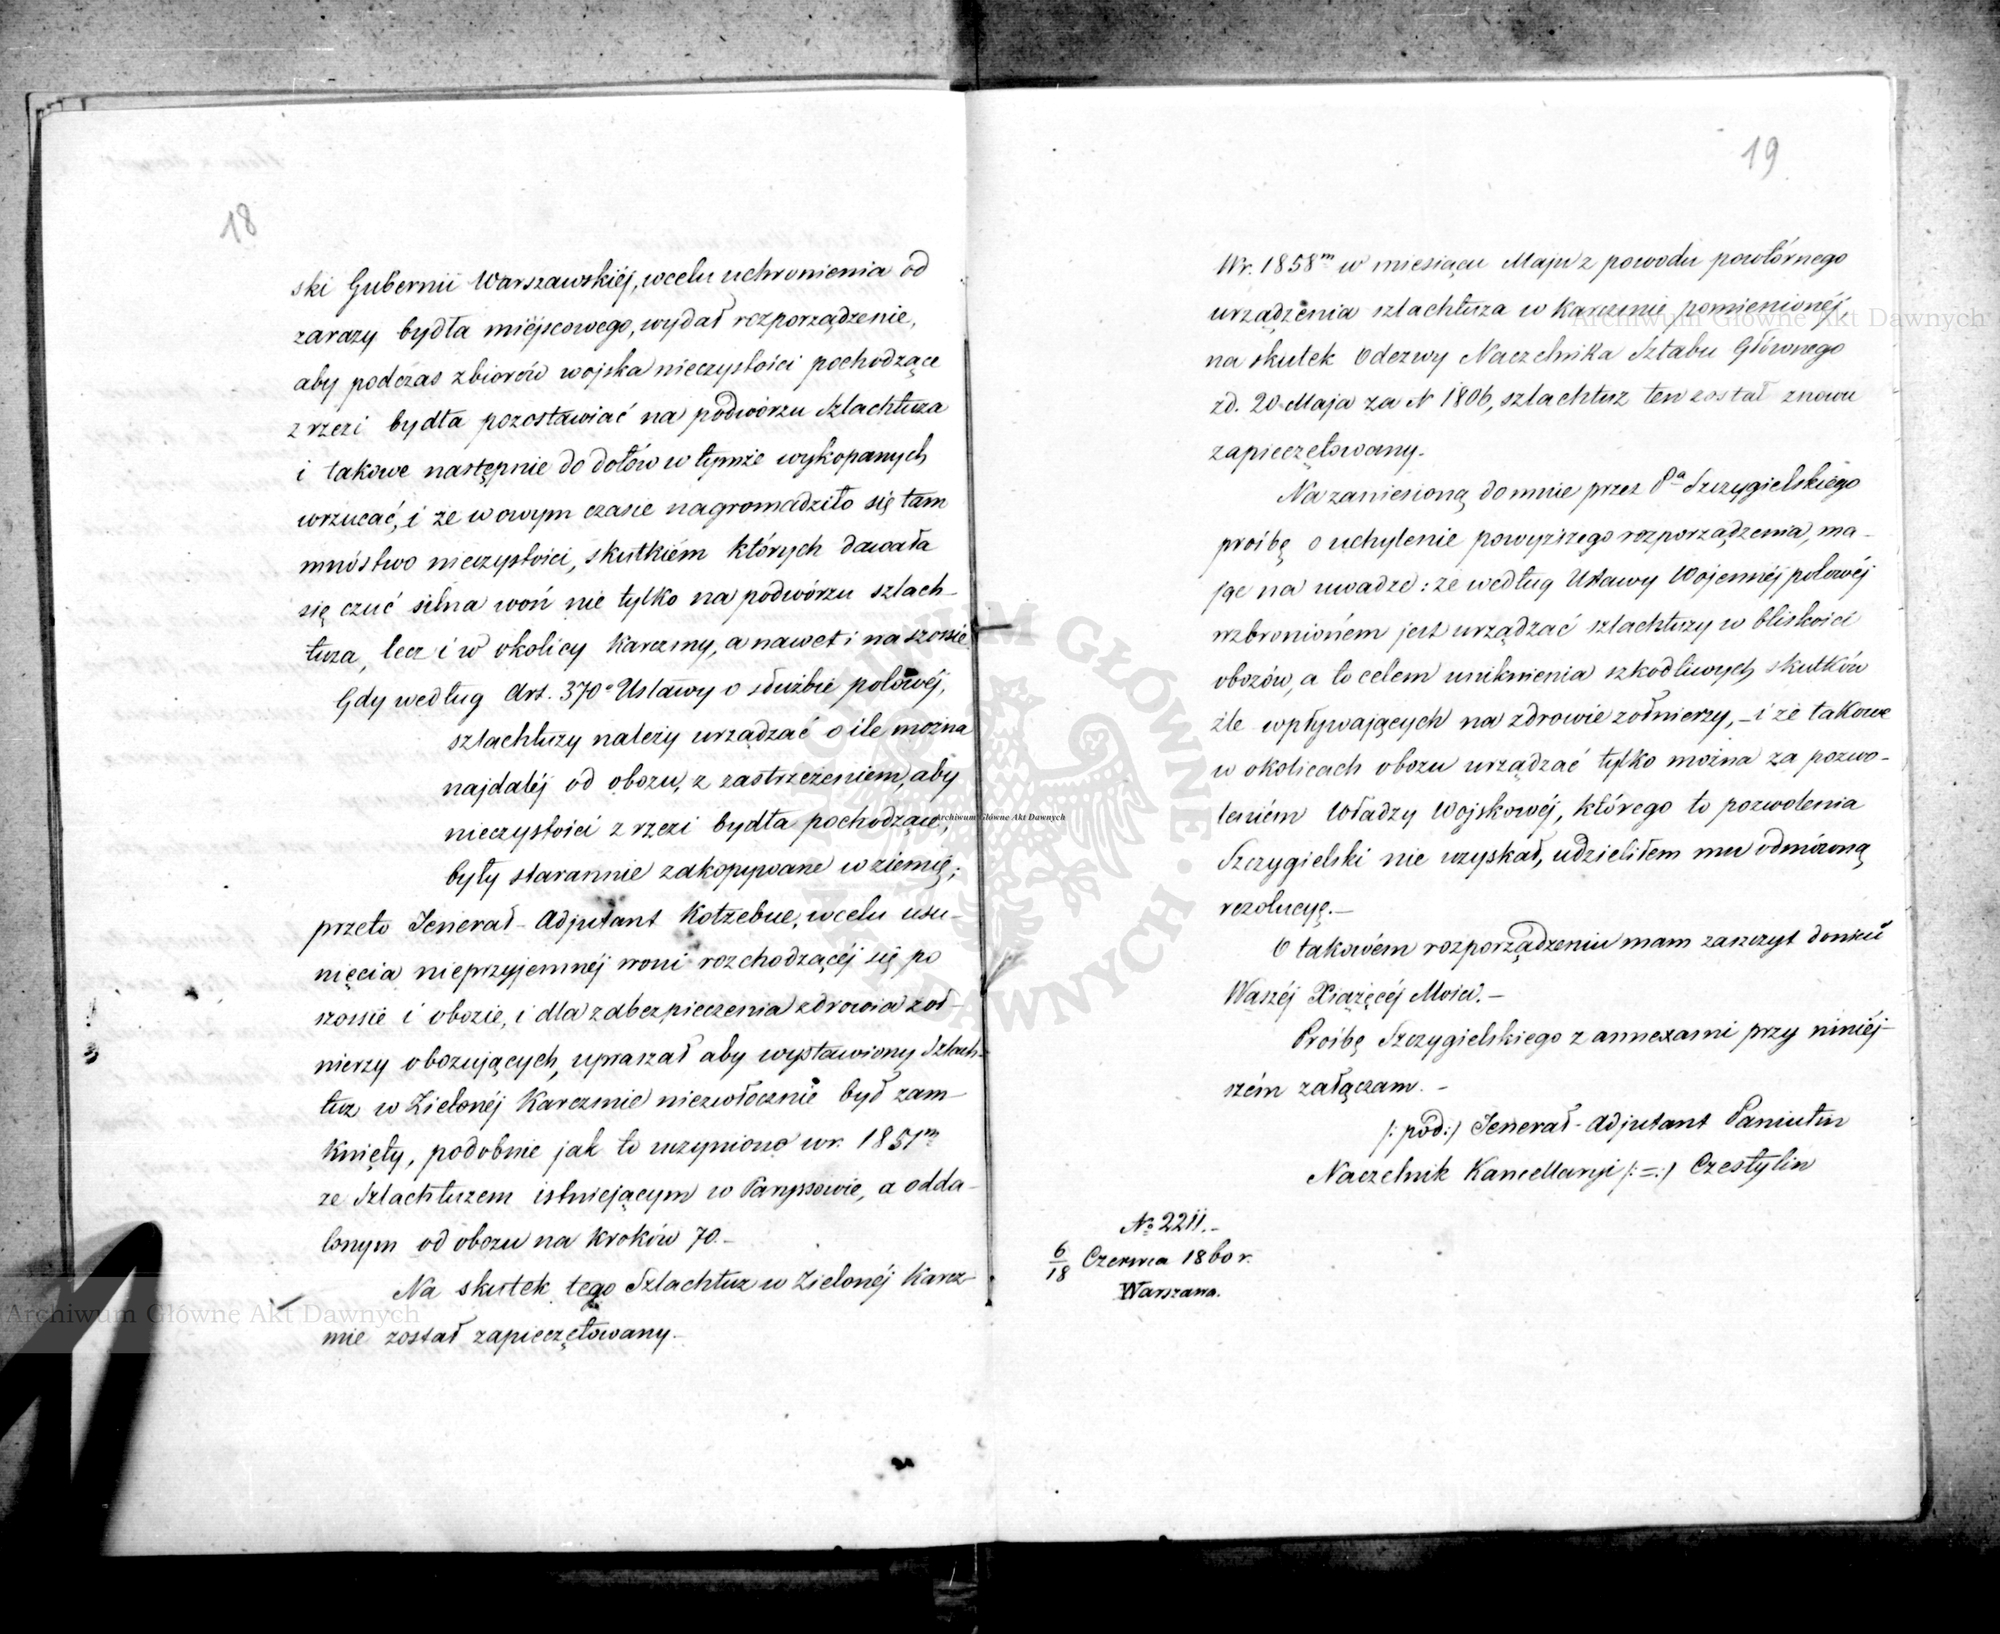 18
ski Gubernii Warszawskiéj, w celu uchronienia od
zarazy bydła miéjscowego, wydał rozporządzenie,
aby podczas zbiorów wojska nieczystości pochodzące
z rzezi bydła pozostawiać na podwórzu Szlachtuza
i takowe następnie do dołów w tymże wykopanych
wrzucać, i że w owym czasie nagromadziło się tam
mnóstwo nieczystości, skutkiem których dawała
się czuć silna woń nie tylko na podwórzu szlach-
tuza, lecz i w okolicy Karczmy, a nawet i na szosie.
Gdy według Art. 370º Ustawy o służbie polowéj,
szlachtuzy należy urządzać o ile można
najdaléj od obozu, z zastrzeżeniem, aby
nieczystości z rzezi bydła pochodzące,
były starannie zakopywane w ziemię;
przeto Jenerał-Adjutant Kotzebue, w celu usu-
nięcia nieprzyjemnéj woni rozchodzącéj się po
szossie i obozie, i dla zabezpieczenia zdrowia żoł-
nierzy obozujących, upraszał aby wystawiony Szlach-
tuz w Zielonéj Karczmie niezwłocznie był zam-
knięty, podobnie jak to uczyniono w r. 1851m
ze Szlachtuzem istniejącym w Parysowie, a odda-
lonym od obozu na kroków 70.-
Na skutek tego Szlachtuz w Zielonéj Karcz-
mie został zapieczętowany.-
19
W r. 1858m w miesiącu Maju z powodu powtórnego
urządzenia szlachtuza w Karczmie pomienionéj,
na skutek Odezwy Naczelnika Sztabu Głównego
z d. 20 Maja za N 1806, szlachtuz ten został znowu
zapieczętowany.
Na zaniesioną do mnie przez Pa Szczygielskiego
prośbę o uchylenie powyższego rozporządzenia, ma-
jąc na uwadze: że według Ustawy Wojennéj polowéj
wzbronioném jest urządzać szlachtuzy w bliskości
obozów, a to celem uniknienia szkodliwych skutków
źle wpływających na zdrowie żołnierzy, - i że takowe
w okolicach obozu urządzać tylko można za pozwo-
leniém Władzy Wojskowéj, którego to pozwolenia
Szczygielski nie uzyskał, udzieliłem mu odmówną
rezolucyę.-
O takowém rozporządzeniu mam zaszczyt donieść
Waszéj Xiążęcéj Mości.-
Prośbę Szczygielskiego z annexami przy niniéj-
szém załączam.-
/:pod:/ Jenerał-Adjutant Paniutin
Naczelnik Kancellaryi /:=:/ Czestylin
No 2211.-
6/18 Czerwca 1860 r.
Warszawa.
Archiwum Główne Akt Dawnych
Archiwum Główne Akt Dawnych
Archiwum Główne Akt Dawnych
ARCHIWUM GŁÓWNE AKT DAWNYCH